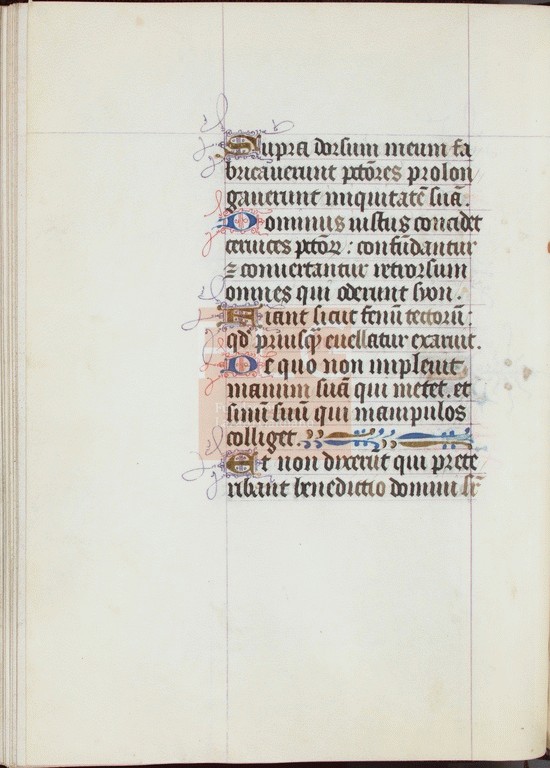 Supra dorsum meum fa
bricauerunt pctōres prolon
gauerunt iniquitatē suā.
Dominus iustus concidet
ceruices pctōꝝ : confūdantur
⁊ conuertantur retrorsum
omnes qui oderunt syon.
Fiant sicut fenū tectorū :
qd̄ priusq̄ euellatur exaruit.
De quo non impleuit
manum suā qui metet. et
sinū suū qui manipulos
colliget.
Et non dixerūt qui prete
ribant benedictio domini